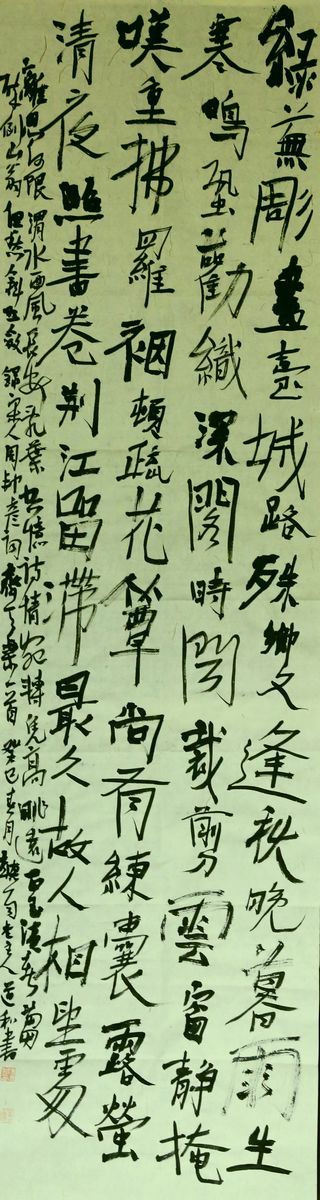 綠蕪彫盡臺城路殊鄉又逢秋晚暮雨生
寒鳴蛩勸織深閣時聞裁剪雲窗靜掩
嘆重拂羅裀頓疏花簟尚有練囊露螢
清夜照書卷荆江留滯最久故人相望處
離思何限渭水西風長安亂葉空憶詩情宛轉凭高眺遠正玉液新篘
醉倒山翁但愁斜照斂錄宋人周邦彦詞齊天樂一首癸巳春月老人道和書